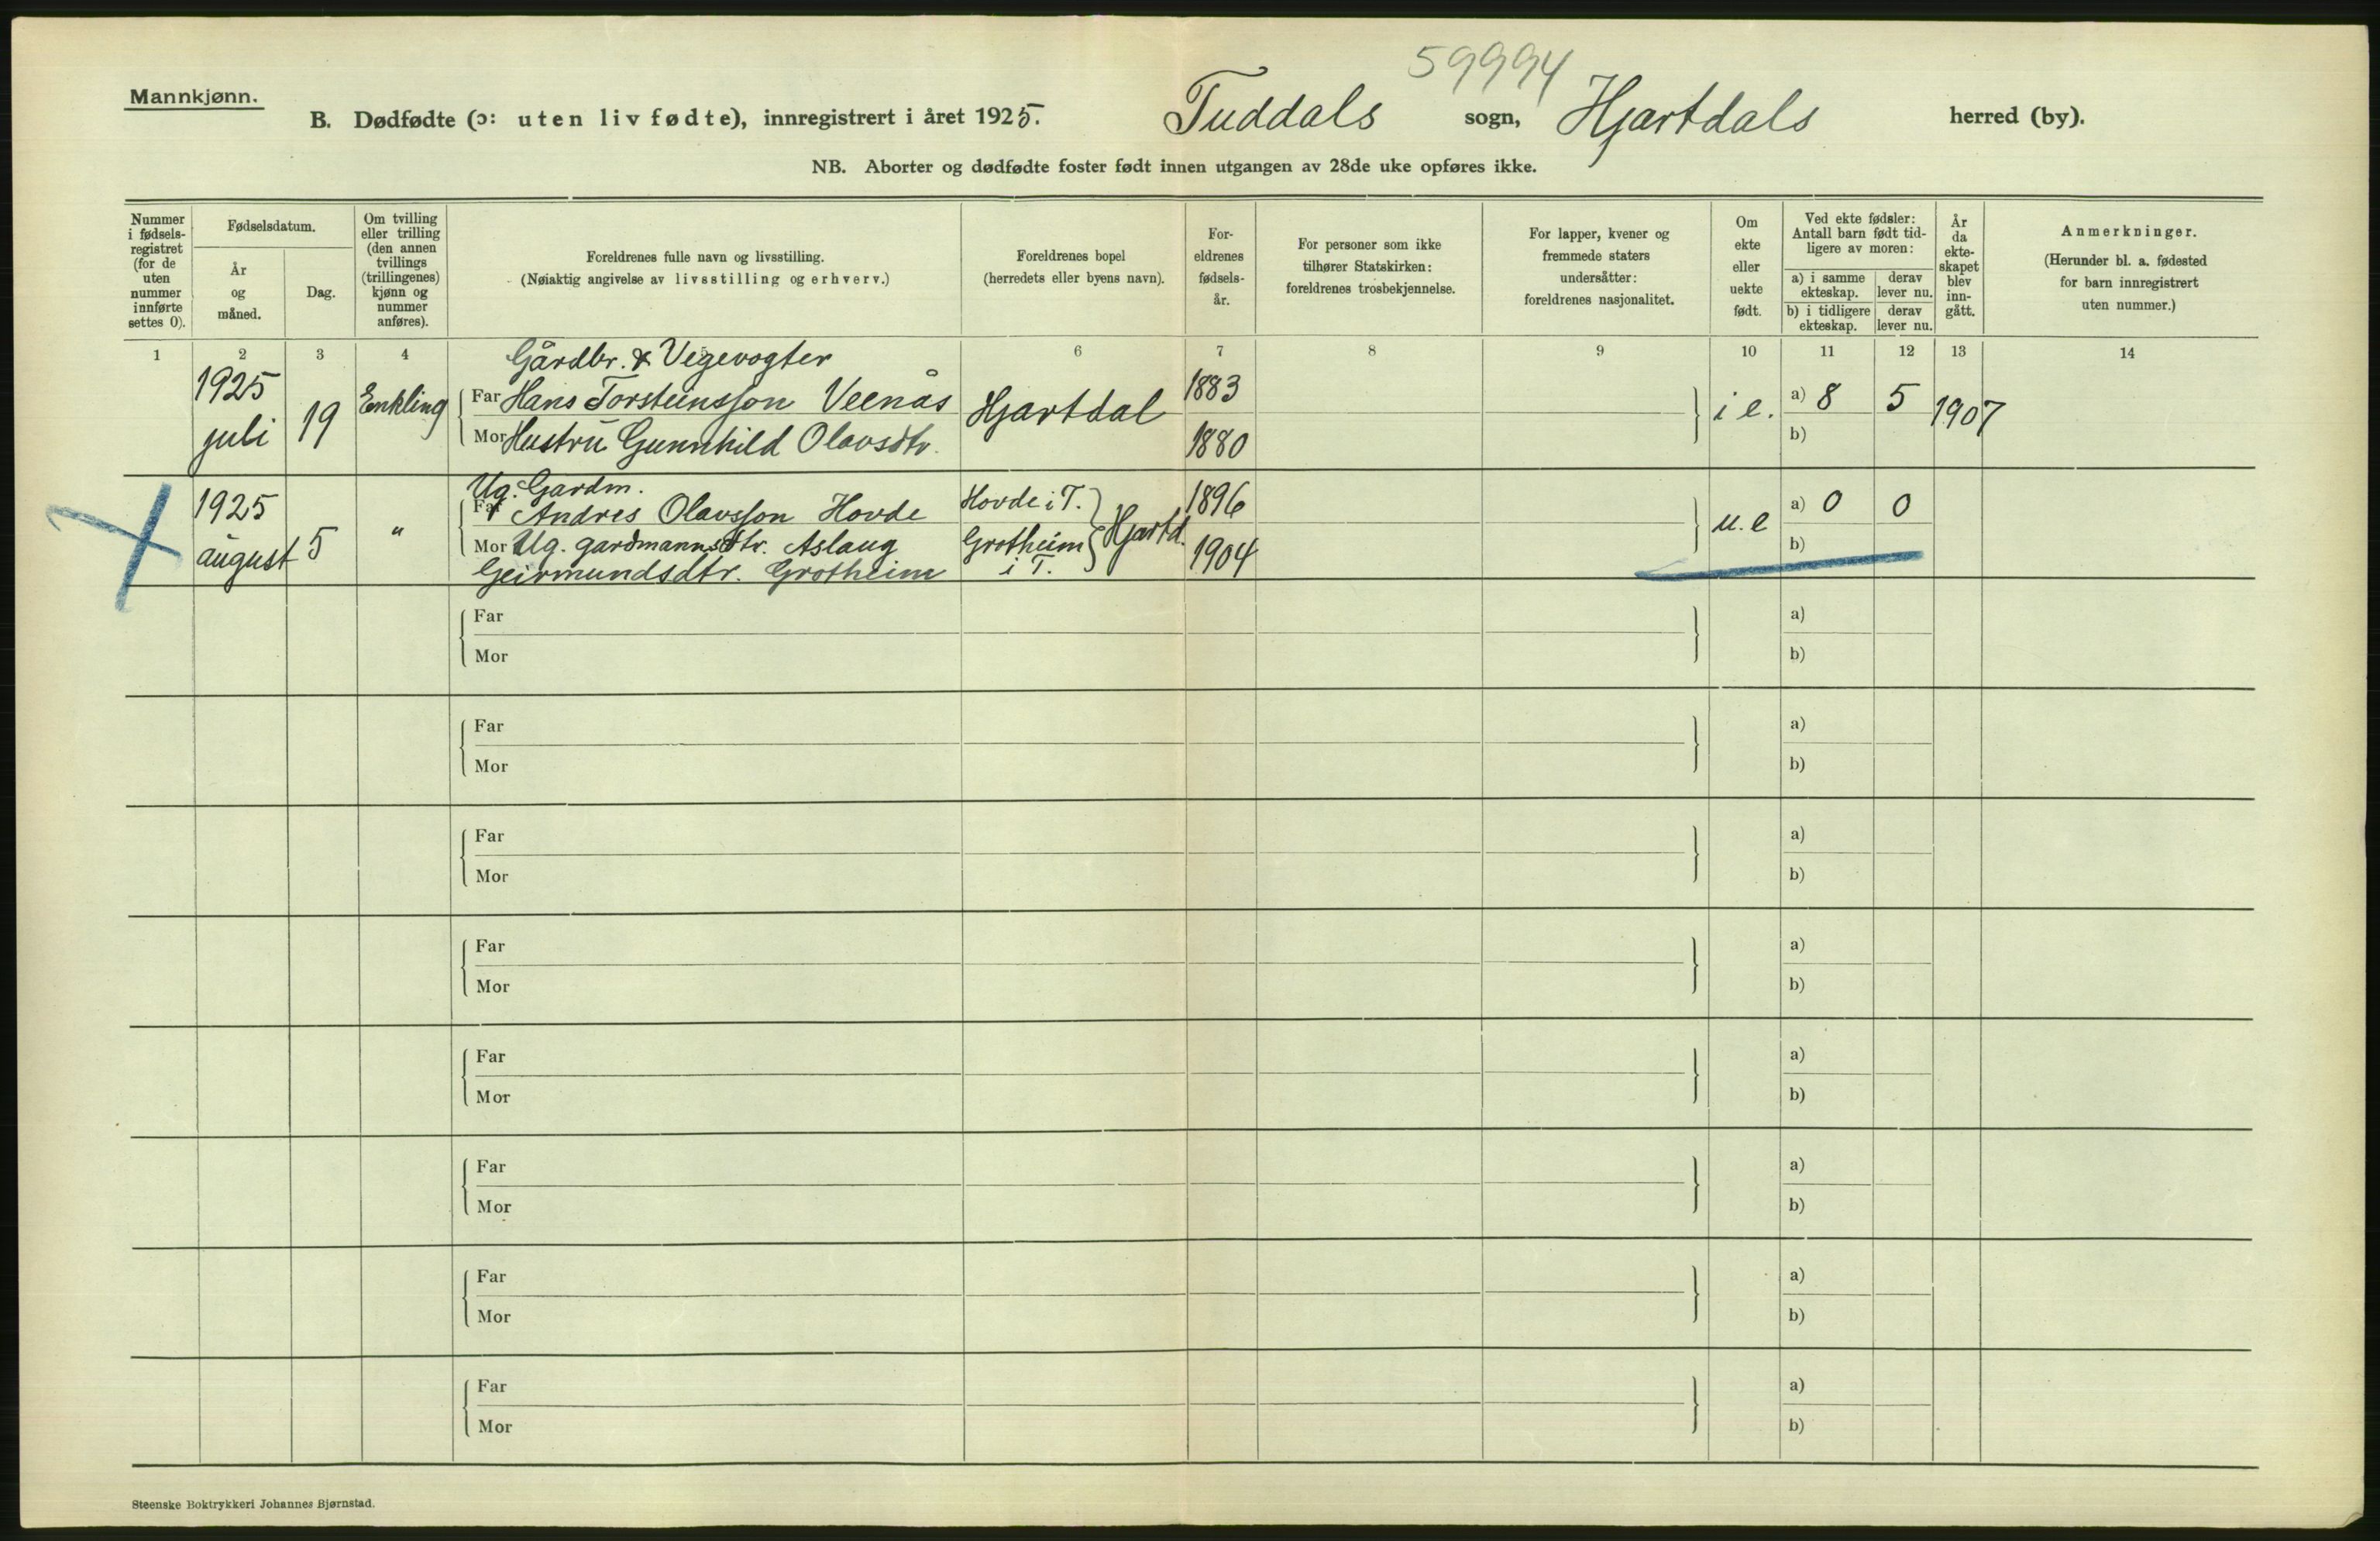 59994
Mannkjønn.
B. Dødfødte (ɔ: uten liv fødte), innregistrert i året 1925. Tuddals sogn, Hjartdals herred (by).
NB. Aborter og dødfødte foster født innen utgangen av 28de uke opføres ikke.
Nummer i fødsels-registret (for de uten nummer innførte settes 0).
Fødselsdatum.
År og måned.
Dag.
Om tvilling eller trilling (den annen tvillings (trillingenes) kjønn og nummer anføres).
Foreldrenes fulle navn og livsstilling.
(Nøiaktig angivelse av livsstilling og erhverv.)
Foreldrenes bopel
(herredets eller byens navn).
For-eldrenes fødsels-år.
For personer som ikke tilhører Statskirken: foreldrenes trosbekjennelse.
For lapper, kvener og fremmede staters undersåtter: foreldrenes nasjonalitet.
Om ekte eller uekte født.
Ved ekte fødsler: Antall barn født tid-ligere av moren:
a) i samme ekteskap. derav lever nu.
b) i tidligere ekteskap. derav lever nu.
År da ekte-skapet blev inn-gått.
Anmerkninger.
(Herunder bl. a. fødested for barn innregistrert uten nummer.)
1 2 3 4 6 7 8 9 10 11 12 13 14
Gårdbr. & Vegevogter
1925 juli 19 Enkling Far Hans Torsteinsson Veenås Hjartdal 1883 i e. a) 8 5 1907
Mor Hustru Gunnhild Olavsdtr. 1880 b)
Ug. Gardm.
1925 august 5 " Far Andres Olavsson Hovde Hovde i T. Hjartd. 1896 u. e a) 0 0
Mor Ug. gardmannsdtr. Aslaug Grotheim i T. 1904 b)
Geirmundsdtr. Grotheim
Far a)
Mor b)
Far a)
Mor b)
Far a)
Mor b)
Far a)
Mor b)
Far a)
Mor b)
Far a)
Mor b)
Far a)
Mor b)
Far a)
Mor b)
Steenske Boktrykkeri Johannes Bjørnstad.